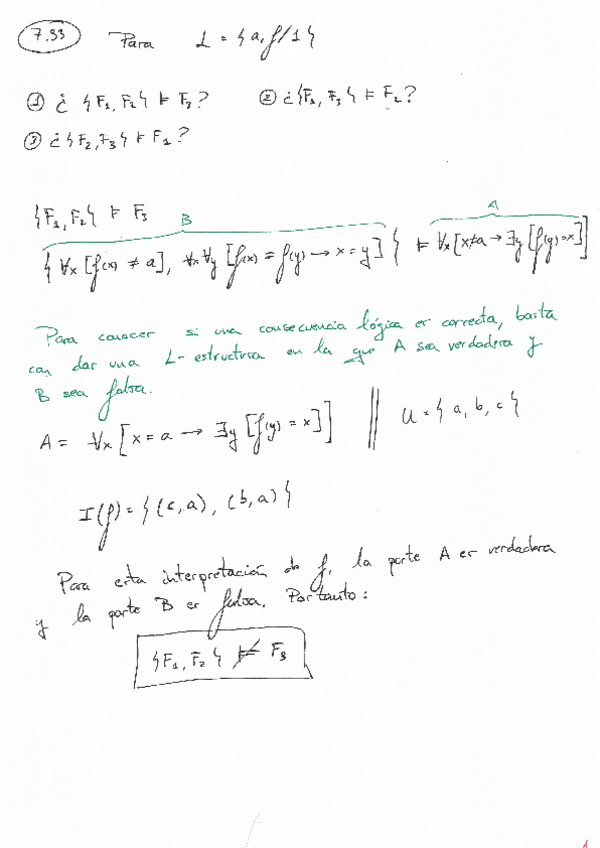 7.33 Para L = { a, f/1 }
① ¿ {F₁, F₂} ⊨ F₃? ② ¿{F₁, F₃} ⊨ F₂?
③ ¿{F₂, F₃} ⊨ F₁?
{F₁, F₂} ⊨ F₃
B A
{ ∀x [f(x) ≠ a], ∀x∀y [f(x) = f(y) → x = y] } ⊨ ∀x[x≠a → ∃y [f(y)=x]]
Para conocer si una consecuencia lógica es correcta, basta
con dar una L-estructura en la que A sea verdadera y
B sea falsa.
A = ∀x [x = a → ∃y [f(y) = x]] || U = { a, b, c }
I(f) = { (c, a), (b, a) }
Para esta interpretación de f, la parte A es verdadera
y la parte B es falsa. Por tanto:
{F₁, F₂} ⊭ F₃
1